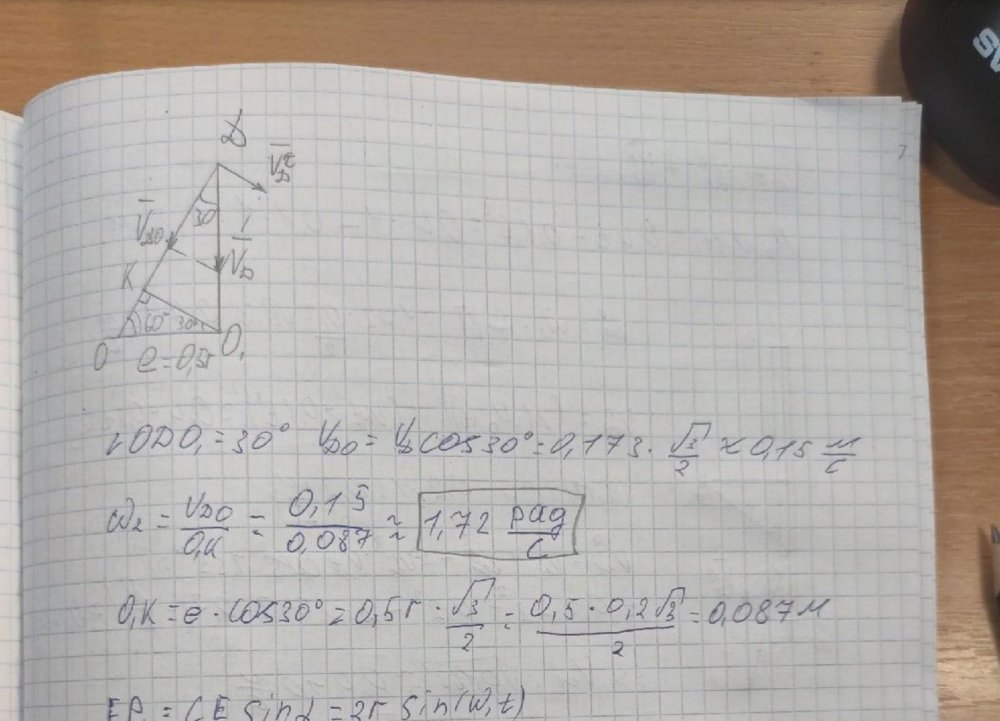 7
D
V̄ᴅᵗ
30
V̄ᴅᴏ
V̄ᴅ
K
60° 30°
O e=0,5r O₁
∠ODO₁=30° Vᴅᴏ = Vᴅcos30°=0,173·√3/2≈0,15 м/с
ω₂ = Vᴅᴏ/O₁K = 0,15/0,087 ≈ 1,72 рад/с
O₁K = e·cos30°=0,5r·√3/2 = 0,5·0,2√3/2 = 0,087м
= CE sinα = 2r sin(ω₁t)